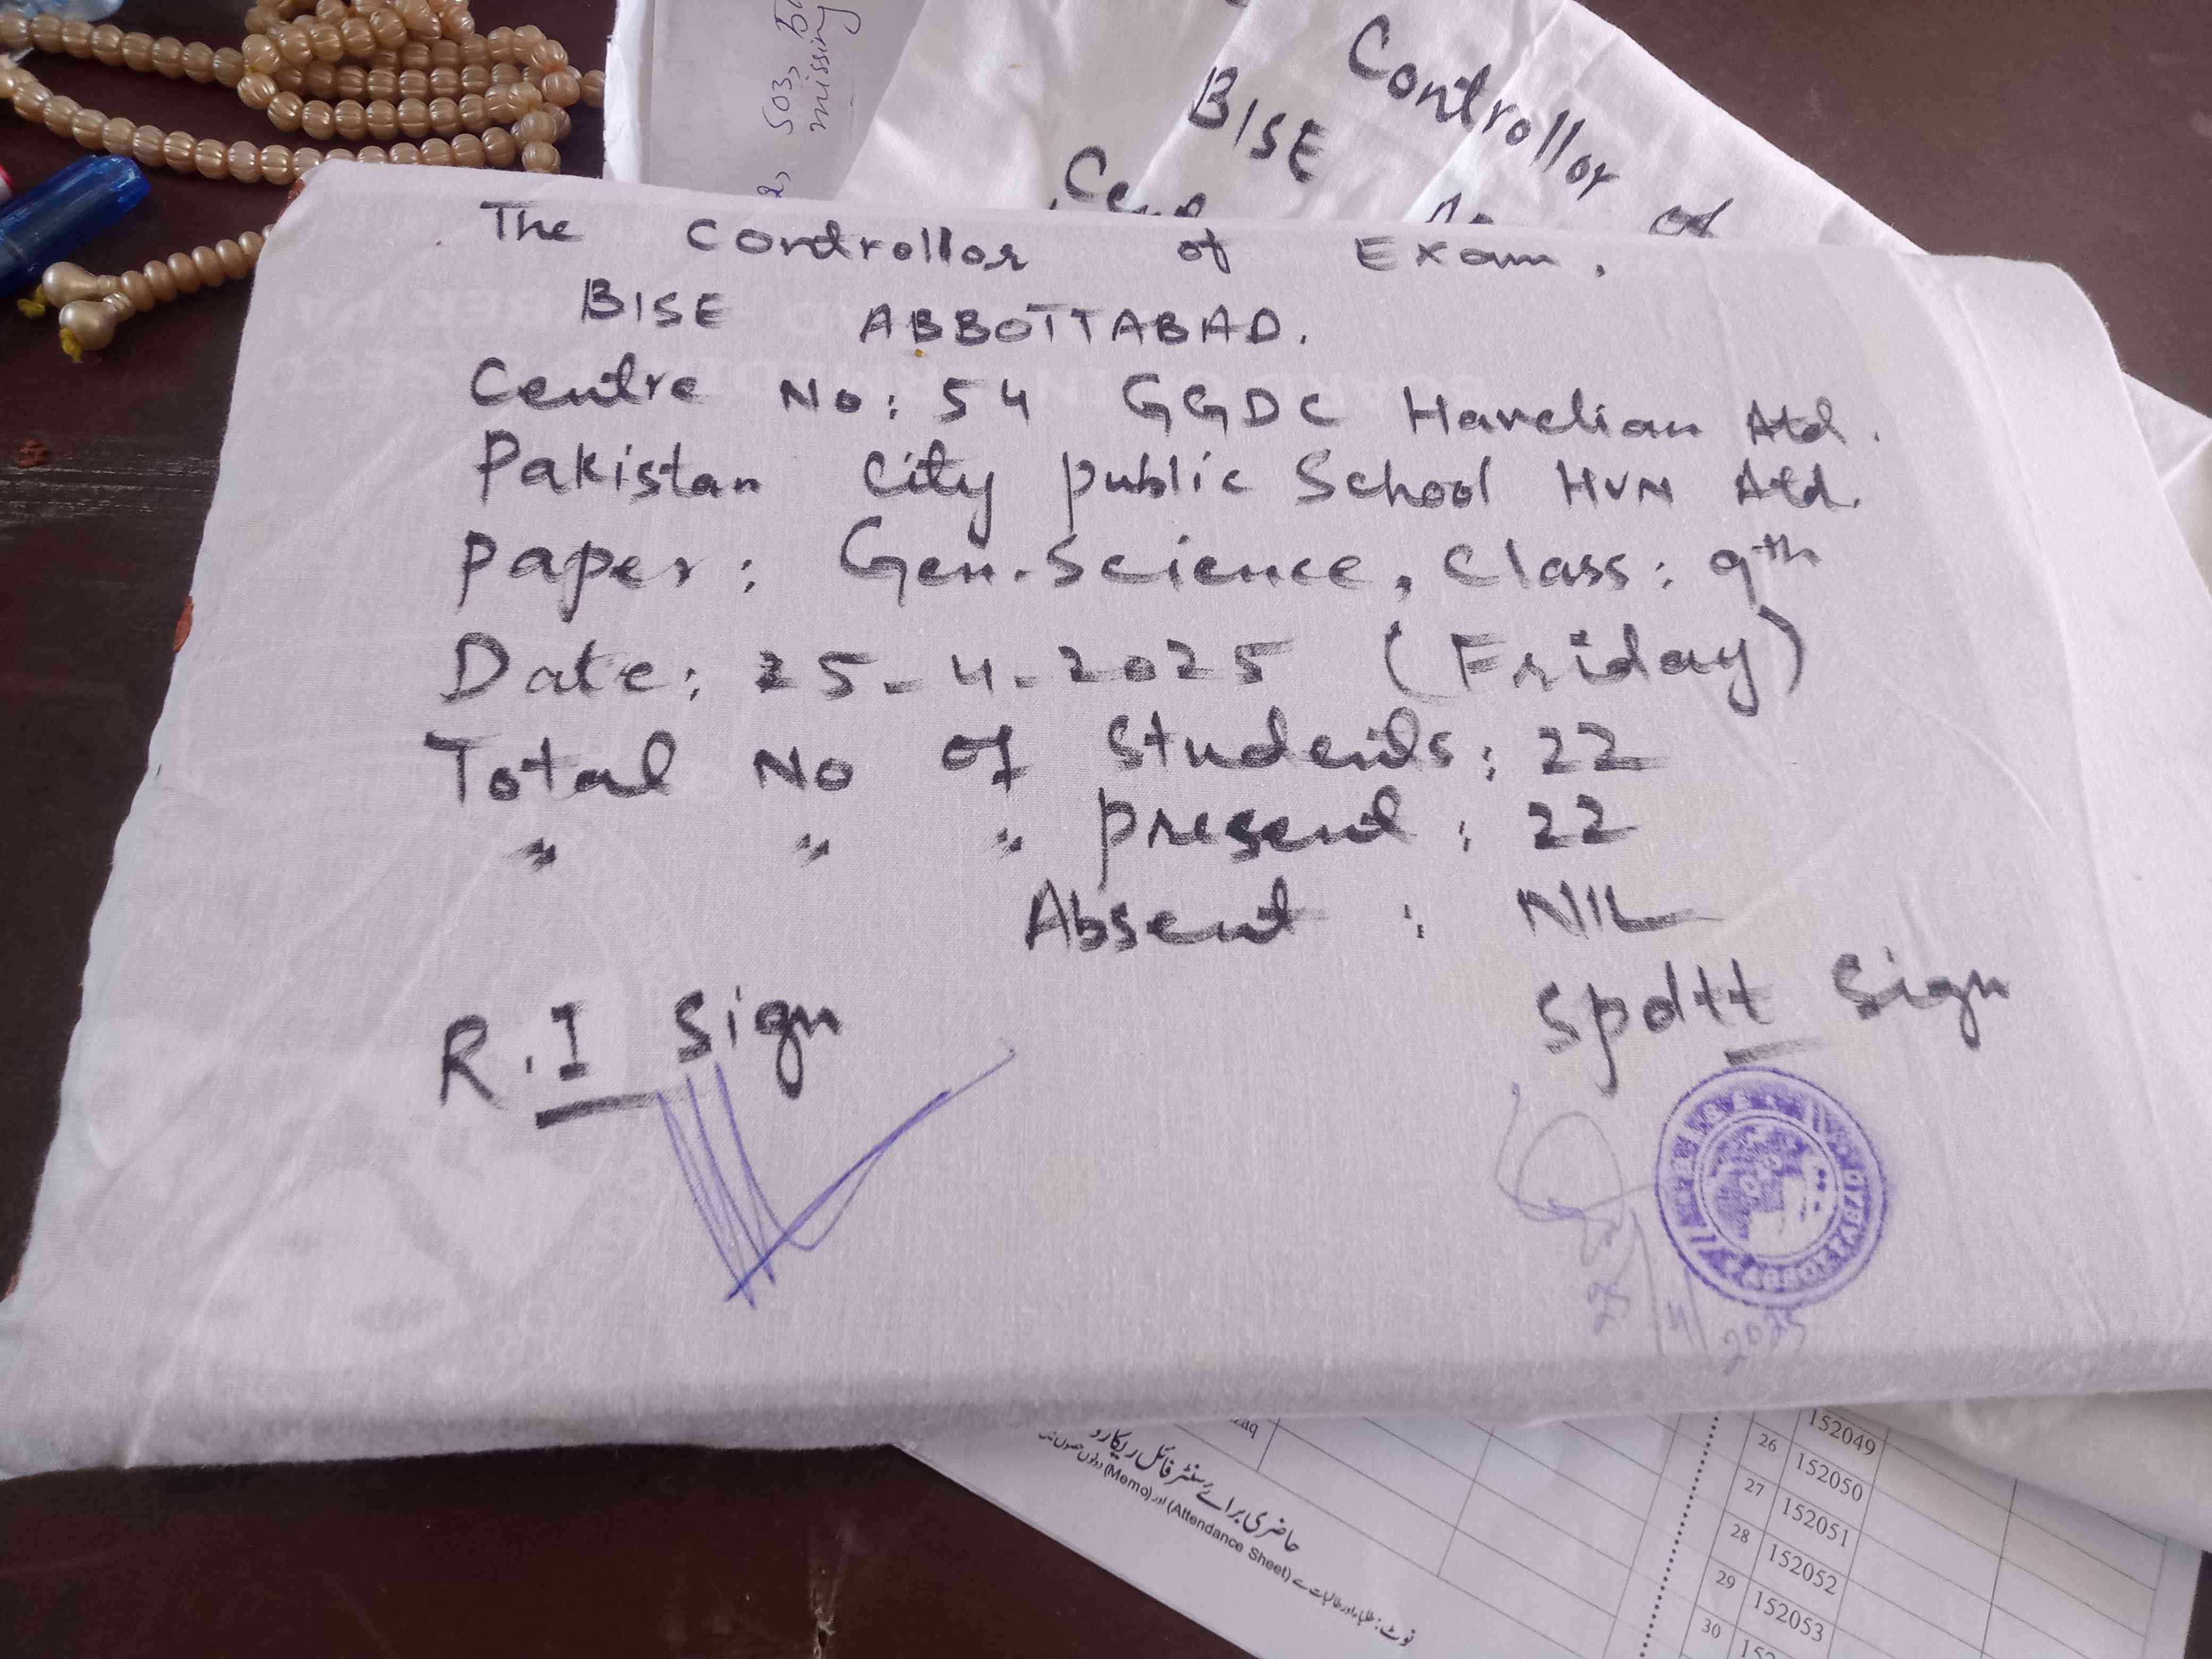 503,
missing
Controllor of
BISE
The Controllor of Exam.
BISE ABBOTTABAD.
Centre No: 54 GGDC Havelian Atd.
Pakistan City public School HVN Atd.
paper: Gen. Science, Class: 9th
Date: 25-4-2025 (Friday)
Total No of Students: 22
" " " present: 22
Absent: NIL
R.I Sign
Spdtt Sign
ABBOTTABAD
25/4/2025
zaq
حاضری برائے سنٹر فائل ریکارڈ
نوٹ: طلباء اور طالبات سے (Attendance Sheet) اور (Memo) دونوں حصوں میں
152049
26 152050
27 152051
28 152052
29 152053
30 152